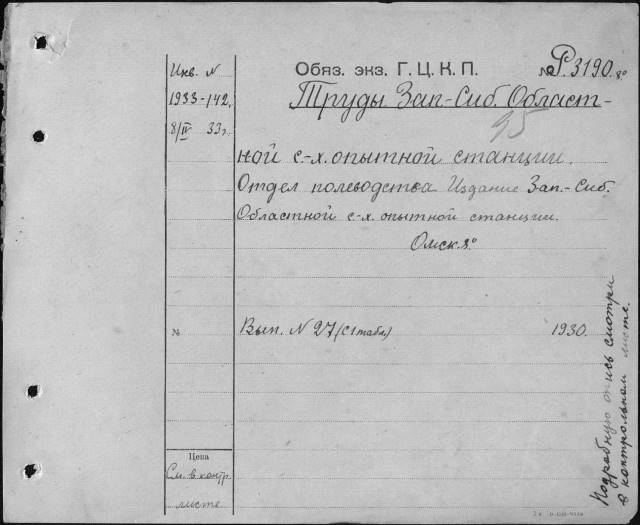 Инв. N
1933-142.
8/IV 33г.
Обяз. экз. Г. Ц. К. П.
№ Р3190. 8º
Труды Зап-Сиб. Област-
95
ной с-х. опытной станции.
Отдел полеводства Издание Зап.-Сиб.
Областной с-х. опытной станции.
Омск 8º
№
Вып. N 27 (С 1 табл.) 1930.
Цена
См. в контр.
листе
Подробную опись смотри
в контрольном листе.